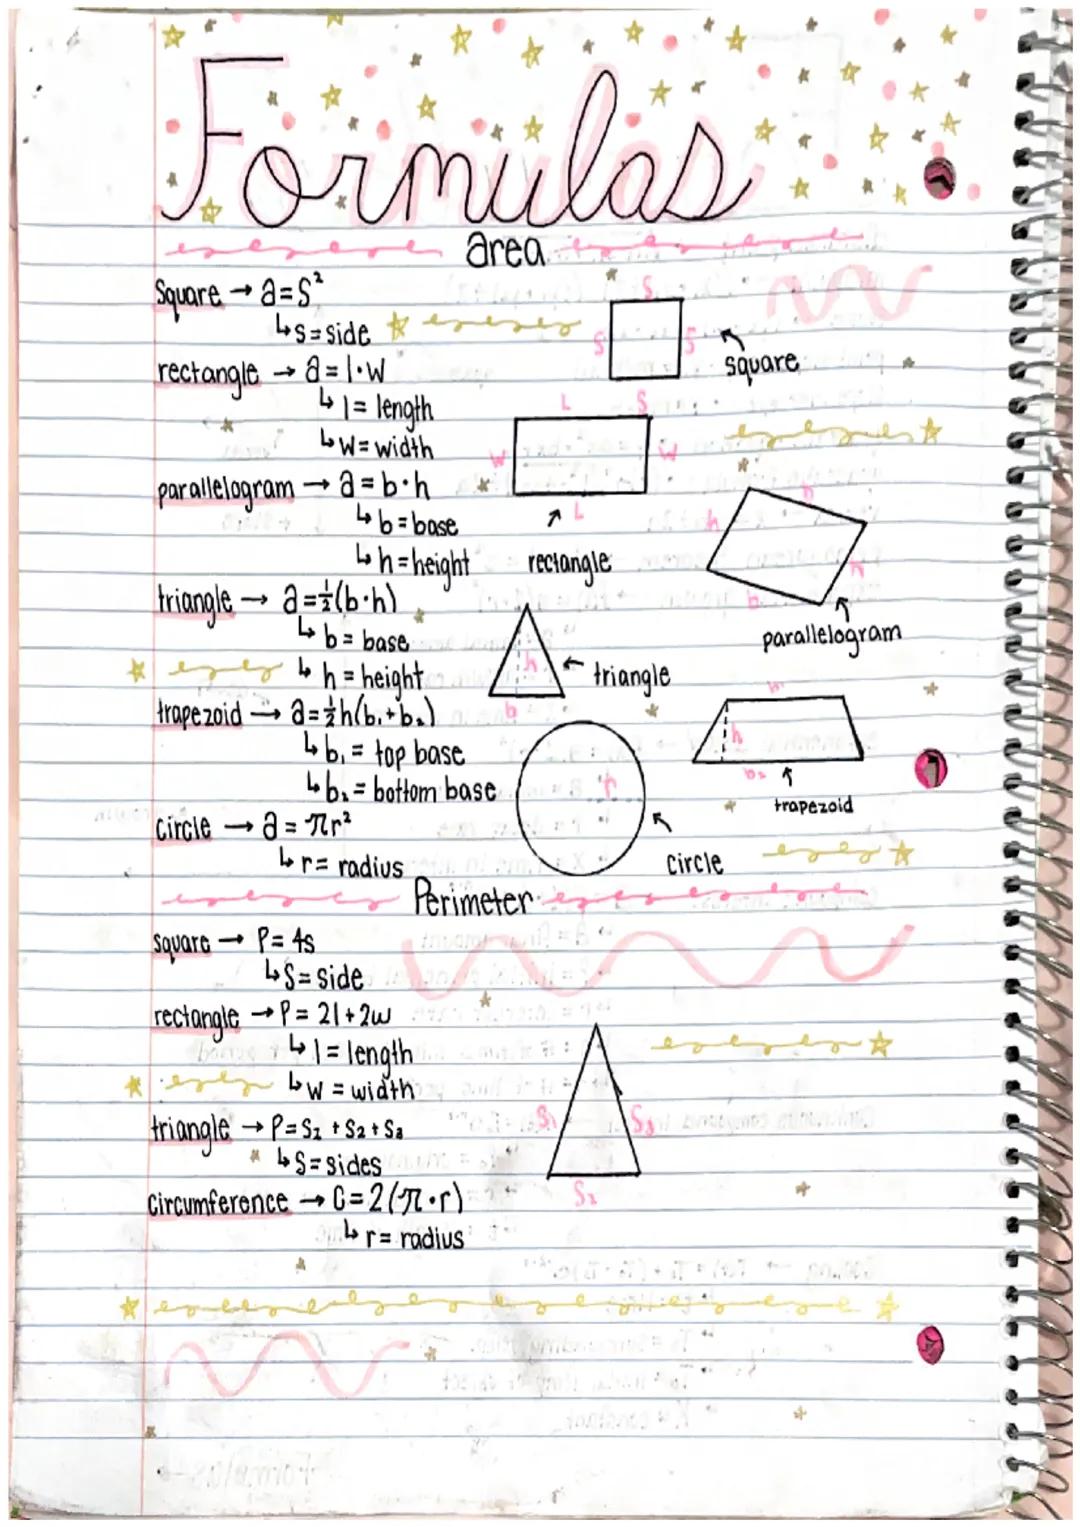 Formulas
area
Square → a=s²
↳s=side
rectangle → a=l·w
↳l=length
↳w=width
parallelogram → a=b·h
↳b=base
↳h=height
triangle → a=½(b·h)
↳b=base
↳h=height
trapezoid → a=½h(b₁+b₂)
↳b₁= top base
↳b₂= bottom base
circle → a=πr²
↳r= radius
S
S
S
S
square
L
W
W
L
rectangle
h
h
h
b
parallelogram
h
b
triangle
h
b₂
trapezoid
r
circle
Perimeter
square → P=4s
↳S=side
rectangle → P=2l+2w
↳l=length
↳w=width
triangle → P=S₁+S₂+S₃
↳S=sides
circumference → C=2(π·r)
↳r=radius
S₁
S₃
S₂